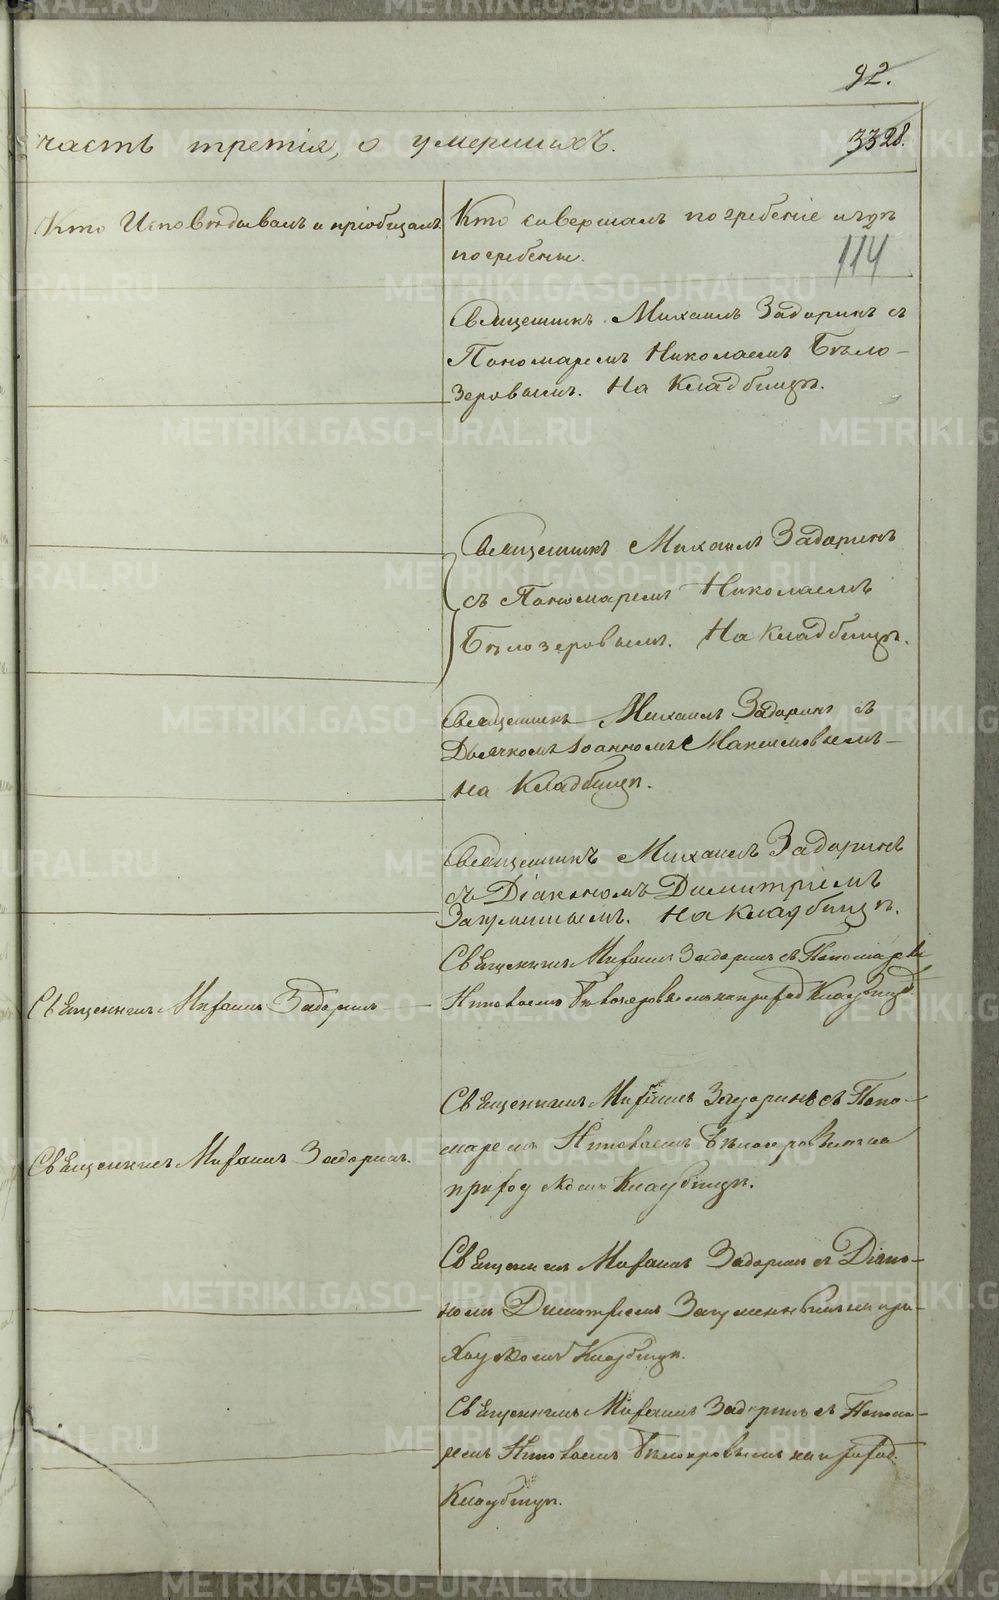 92.
часть третія, о умершихъ.
3328.
Кто Исповѣдывалъ и пріобщалъ
Кто совершалъ погребеніе и гдѣ
погребены.
114
Священникъ Михаилъ Задоринъ съ
Пономаремъ Николаемъ Бѣло-
зеровымъ. На Кладбищѣ.
Священникъ Михаилъ Задоринъ
съ Пономаремъ Николаемъ
Бѣлозеровымъ. На Кладбищѣ.
Священникъ Михаилъ Задоринъ съ
Дьячкомъ Іоанномъ Максимовымъ
на Кладбищѣ.
Священникъ Михаилъ Задоринъ
съ Діакономъ Димитріемъ
На Кладбищѣ.
Священникъ Михаилъ Задоринъ съ Пономаремъ
Николаемъ Бѣлозеровымъ на приход Кладбищѣ
Священникъ Михаилъ Задоринъ
Священникъ Михаилъ Задоринъ съ Поно-
маремъ Николаемъ Бѣлозеровымъ на
приходскомъ Кладбищѣ.
Священникъ Михаилъ Задоринъ.
Священникъ Михаилъ Задоринъ съ Діако-
номъ Димитріемъ на при-
ходскомъ Кладбищѣ.
Священникъ Михаилъ Задоринъ съ Понома-
ремъ Николаемъ Бѣлозеровымъ на приход.
Кладбищѣ.
METRIKI.GASO-URAL.RU